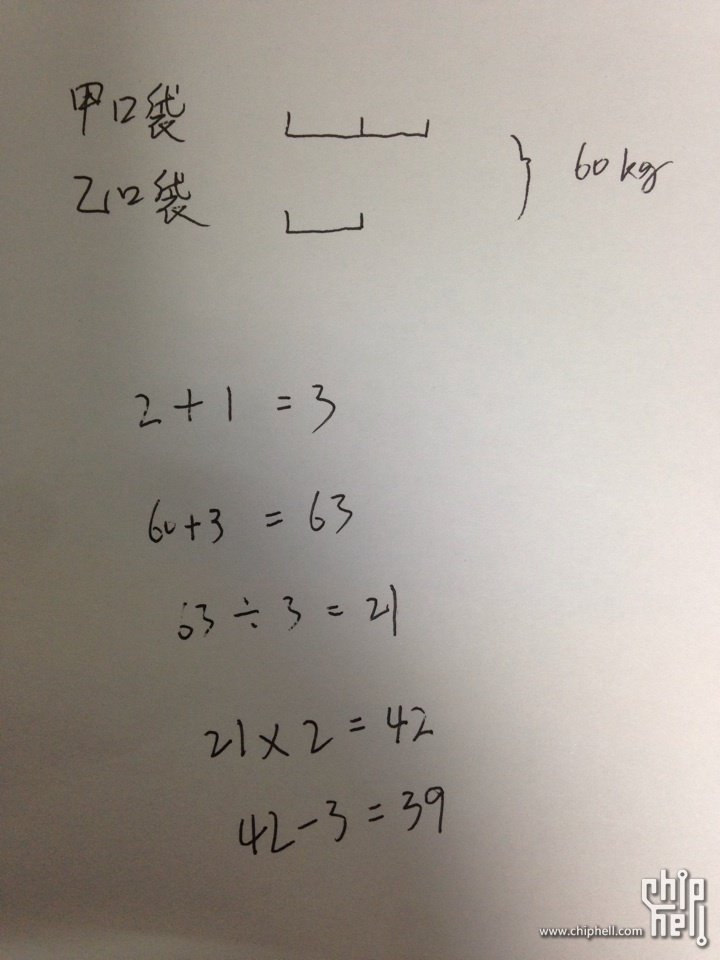 甲口袋
乙口袋
60kg
2+1=3
60+3=63
63÷3=21
21×2=42
42-3=39
chip
hell
www.chiphell.com